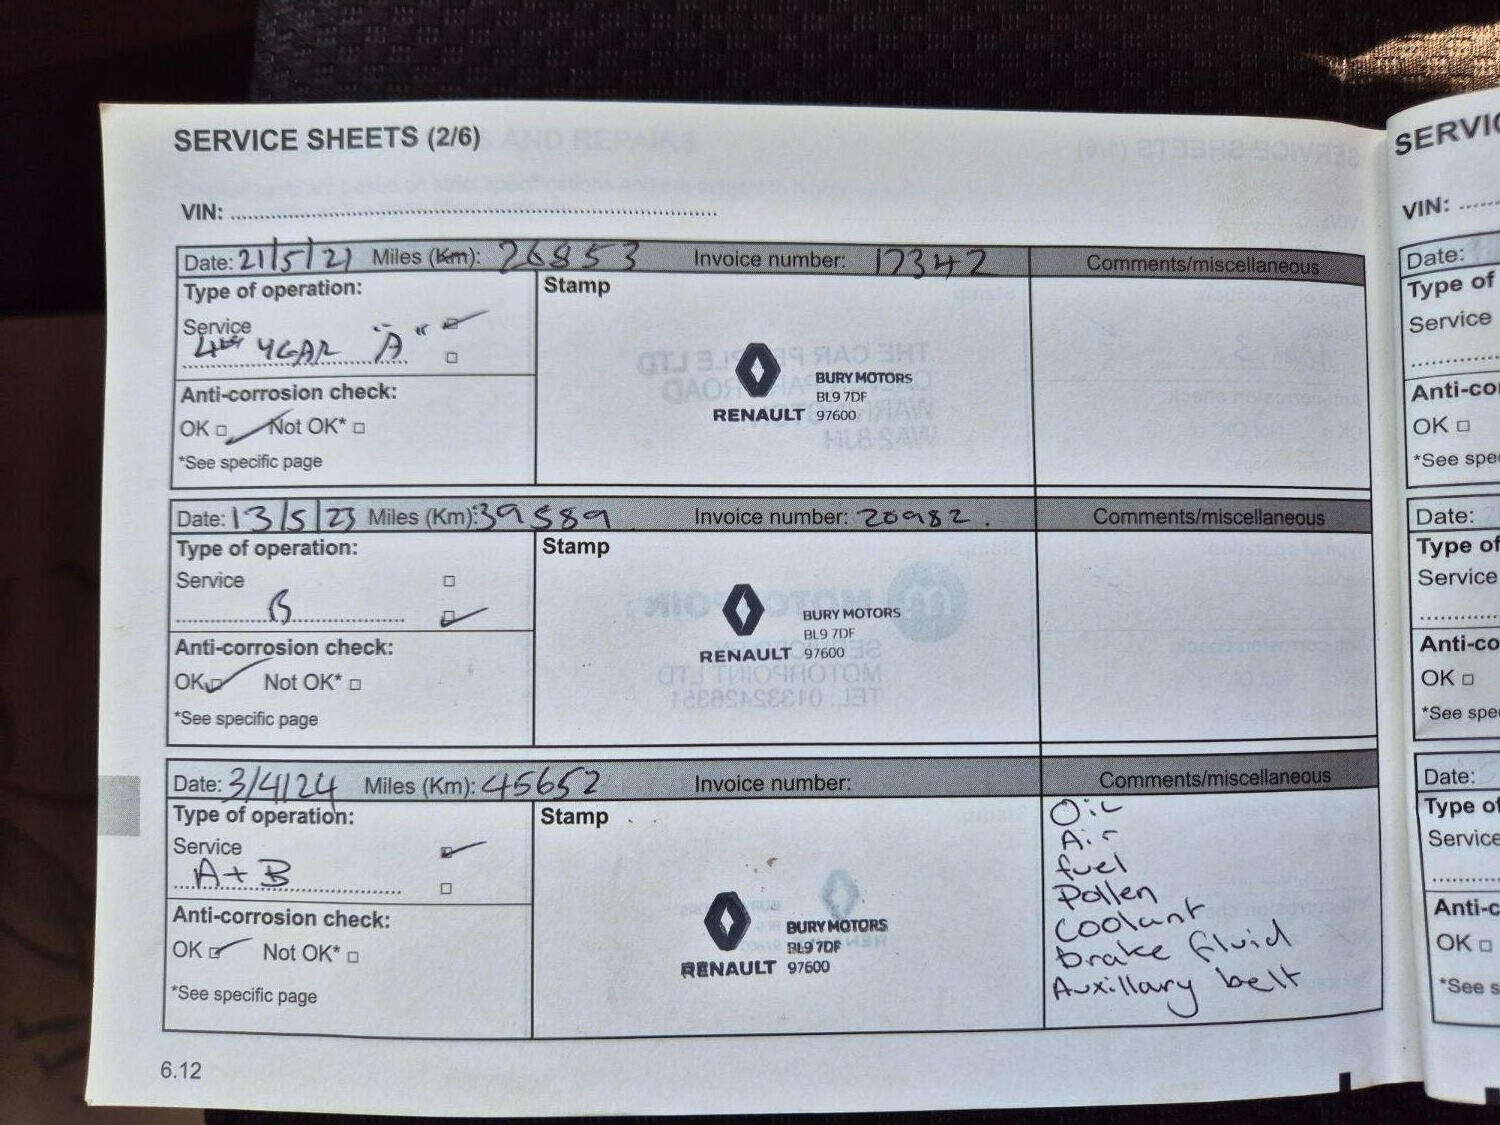 SERVICE SHEETS (2/6)
VIN:
Date: 21/5/21 Miles (Km): 26853 Invoice number: 17342 Comments/miscellaneous
Type of operation:
Stamp
Service
4th YEAR "A"
Anti-corrosion check:
OK Not OK*
*See specific page
BURY MOTORS
BL9 7DF
RENAULT 97600
Date: 13/5/23 Miles (Km): 39589 Invoice number: 20982. Comments/miscellaneous
Type of operation:
Stamp
Service
B
Anti-corrosion check:
OK Not OK*
*See specific page
BURY MOTORS
BL9 7DF
RENAULT 97600
Date: 3/4/24 Miles (Km): 45652 Invoice number: Comments/miscellaneous
Type of operation:
Stamp
Service
A + B
Anti-corrosion check:
OK Not OK*
*See specific page
BURY MOTORS
BL9 7DF
RENAULT 97600
Oil
Air
fuel
Pollen
Coolant
brake fluid
Auxillary belt
6.12
SERVIC
VIN:
Date:
Type of
Service
Anti-co
OK
*See spe
Date:
Type of
Service
Anti-co
OK
*See spe
Date:
Type of
Service
Anti-c
OK
*See s